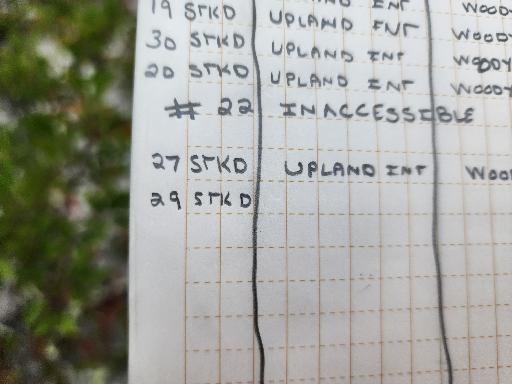 19 STKD UPLAND ENT WOODY
30 STKD UPLAND INT WOODY
20 STKD UPLAND INT WOODY
# 22 INACCESSIBLE
27 STKD UPLAND INT WOO
29 STKD